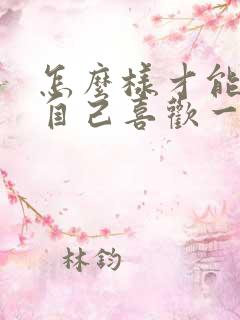 怎麼樣才能
自己喜歡一
林鈞